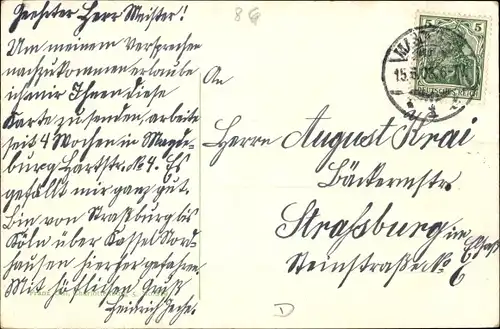 Geehrter Herr Meister!
Um meinem Versprechen
nachzukommen erlaube
ich mir Ihnen diese
Karte zu senden, arbeite
seit 4 Wochen in Magde-
burg Hartstr. No 4. Es
gefällt mir ganz gut.
Bin von Straßburg bis
Köln über Kassel Nord-
hausen hierher gefahren.
Mit höflichen Gruß
Heidrich
8G
5 5
DEUTSCHES REICH
15.5.
An
Herrn August Krai
Bäckermstr.
Strassburg in Elsaß
Steinstraßeck. 6
D